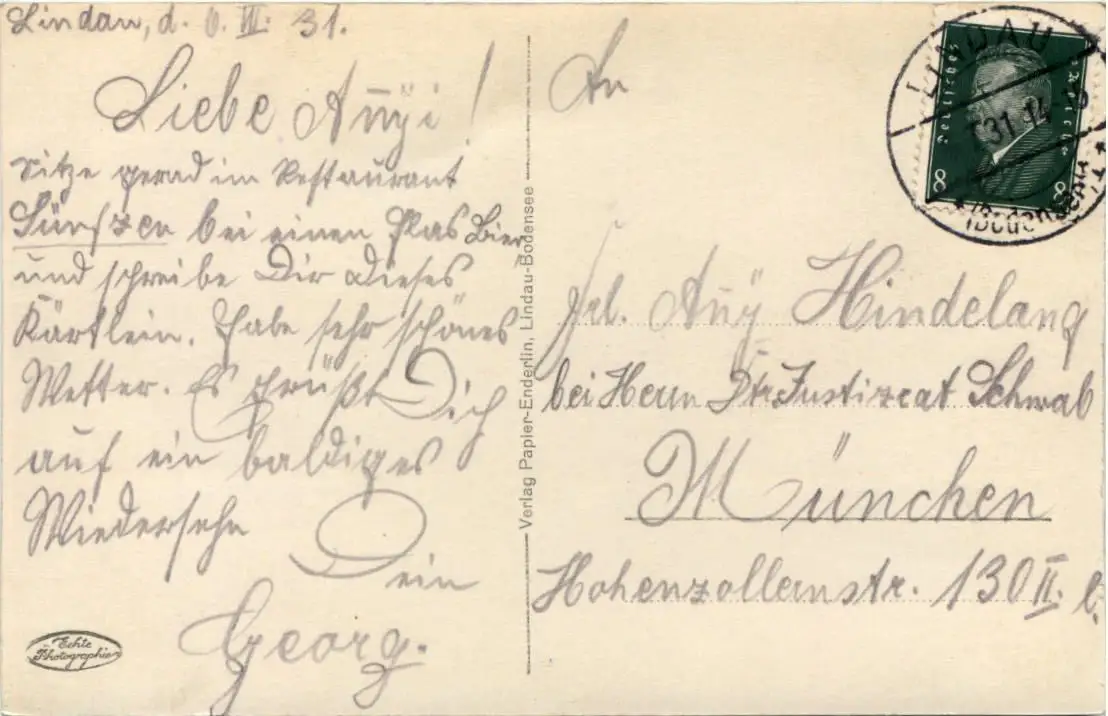 Lindau, d. 6. VII. 31.
Liebe Anni!
Sitze gerad im Restaurant
Sünfzen bei einen Glas Bier
und schreibe Dir dieses
Kärtlein. Habe sehr schönes
Wetter. Es grüßt Dich
auf ein baldiges
Wiedersehn
Dein
Georg.
Echte
Photographie
Verlag Papier-Enderlin, Lindau-Bodensee
An
Frl. Hindelang
bei Herrn Justizrat Schwab
München
Hohenzollernstr. 130 II. l.
LINDAU
31. 14
(Bodensee)
Deutsches Reich
8 8